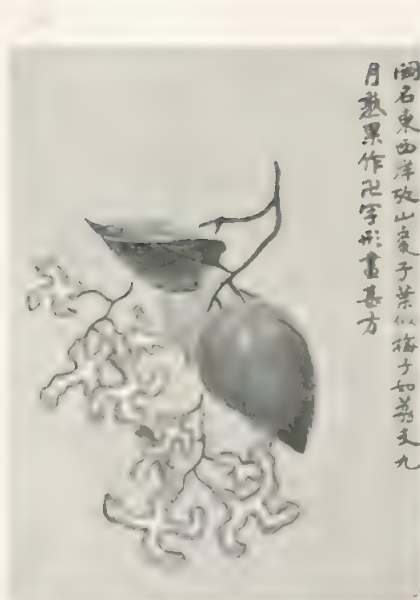 闽名東西洋攷山棗子葉似梅子如荔支九
月熟果作卍字形畫甚方